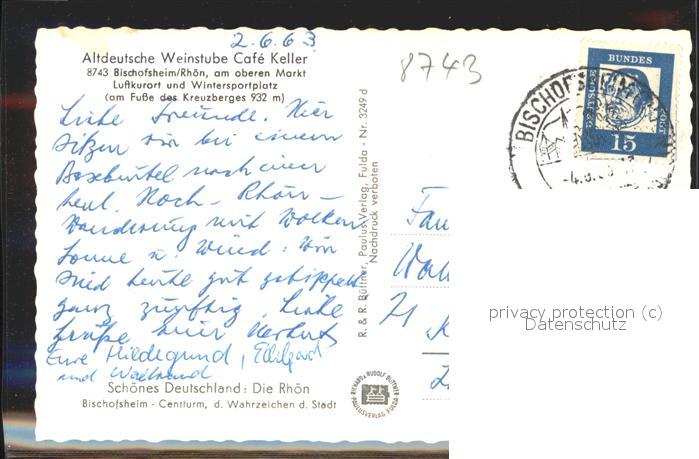 2.6.63
Altdeutsche Weinstube Café Keller
8743 Bischofsheim/Rhön, am oberen Markt
Luftkurort und Wintersportplatz
(am Fuße des Kreuzberges 932 m)
8743
Liebe Freunde. Hier
sitzen wir bei einem
Bocksbeutel nach einer
Hoch-Rhön-
Wanderung mit Wolken
Sonne u. Wind. Wir
sind heute gut getippelt
ganz zünftig. Liebe
Grüße Herbert
Eure Hildegund,
und Waltraud
Schönes Deutschland: Die Rhön
Bischofsheim - Centturm, d. Wahrzeichen d. Stadt
R. & R. Büttner, Paulus-Verlag, Fulda - Nr. 3249 d
Nachdruck verboten
RICHARD & RUDOLF BÜTTNER
PAULUSVERLAG FULDA
DEUTSCHE
BUNDES
POST
15
BISCHOFSHEIM
Fam
71
privacy protection (c)
Datenschutz